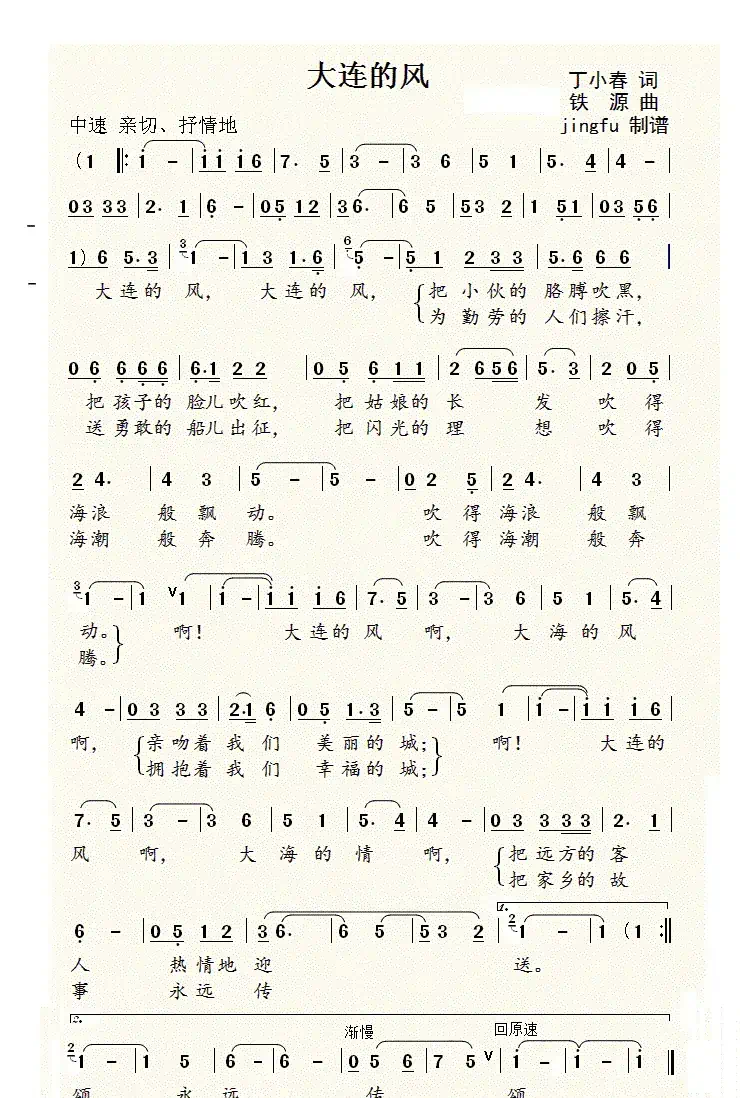 大连的风
丁小春 词
铁 源 曲
中速 亲切、抒情地
jingfu 制谱
(1 ‖: i - | i i i 6 | 7. 5 | 3 - | 3 6 | 5 1 | 5. 4 | 4 - |
03 33 | 2. 1 | 6 - | 05 12 | 36. | 6 5 | 53 2 | 1 51 | 03 56 |
1) 6 5.3 | 3 1 - | 1 3 1.6 | 6 5 - | 5 1 2 33 | 5.6 6 6 |
大连的 风, 大连的 风, 把 小伙的 胳膊吹黑,
为 勤劳的 人们擦汗,
06 666 | 6.1 22 | 05 611 | 2 656 | 5. 3 | 2 05 |
把孩子的 脸儿吹红, 把姑娘的 长 发 吹 得
送勇敢的 船儿出征, 把闪光的 理 想 吹 得
2 4. | 4 3 | 5 - | 5 - | 0 2 5 | 2 4. | 4 3 |
海浪 般 飘 动。 吹 得 海浪 般 飘
海潮 般 奔 腾。 吹 得 海潮 般 奔
3 1 - | 1 ∨1 | i - | i i i 6 | 7. 5 | 3 - | 3 6 | 5 1 | 5. 4 |
动。 啊! 大连的 风 啊, 大 海 的 风
腾。
4 - | 0 3 3 3 | 2.1 6 | 05 1.3 | 5 - | 5 1 | i - | i i i 6 |
啊, 亲吻着 我 们 美丽的 城; 啊! 大连的
拥抱着 我 们 幸福的 城;
7. 5 | 3 - | 3 6 | 5 1 | 5. 4 | 4 - | 03 333 | 2. 1 |
风 啊, 大 海 的 情 啊, 把远方的 客
把家乡的 故
1.
6 - | 05 12 | 3 6. | 6 5 | 53 2 | 2 1 - | 1 (1 :‖
人 热情地 迎 送。
事 永远 传
2.
渐慢 回原速
2 1 - | 1 5 | 6 - | 6 - | 05 6 | 7 5 ∨ | i - | i - | i ‖
颂 永 远 传 颂